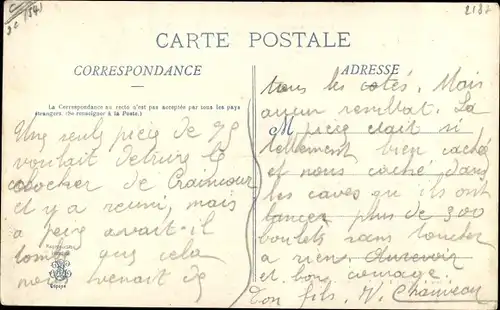 2182
CARTE POSTALE
CORRESPONDANCE
ADRESSE
La Correspondance au recto n'est pas acceptée par tous les pays
étrangers. (Se renseigner à la Poste.)
Une seule pièce de 79
voulait détruire le
clocher de Craincour
et y a réuni, mais
a peine avait-il
tombé que cela
nous venait de
tous les cotés. Mais
aucun resultat. La
M pièce était si
tellement bien cachée
et nous caché dans
les caves qu'ils ont
lancer plus de 300
boulets sans toucher
a rien. Aurevoir
et bon courage.
Ton fils, V. Chauveau